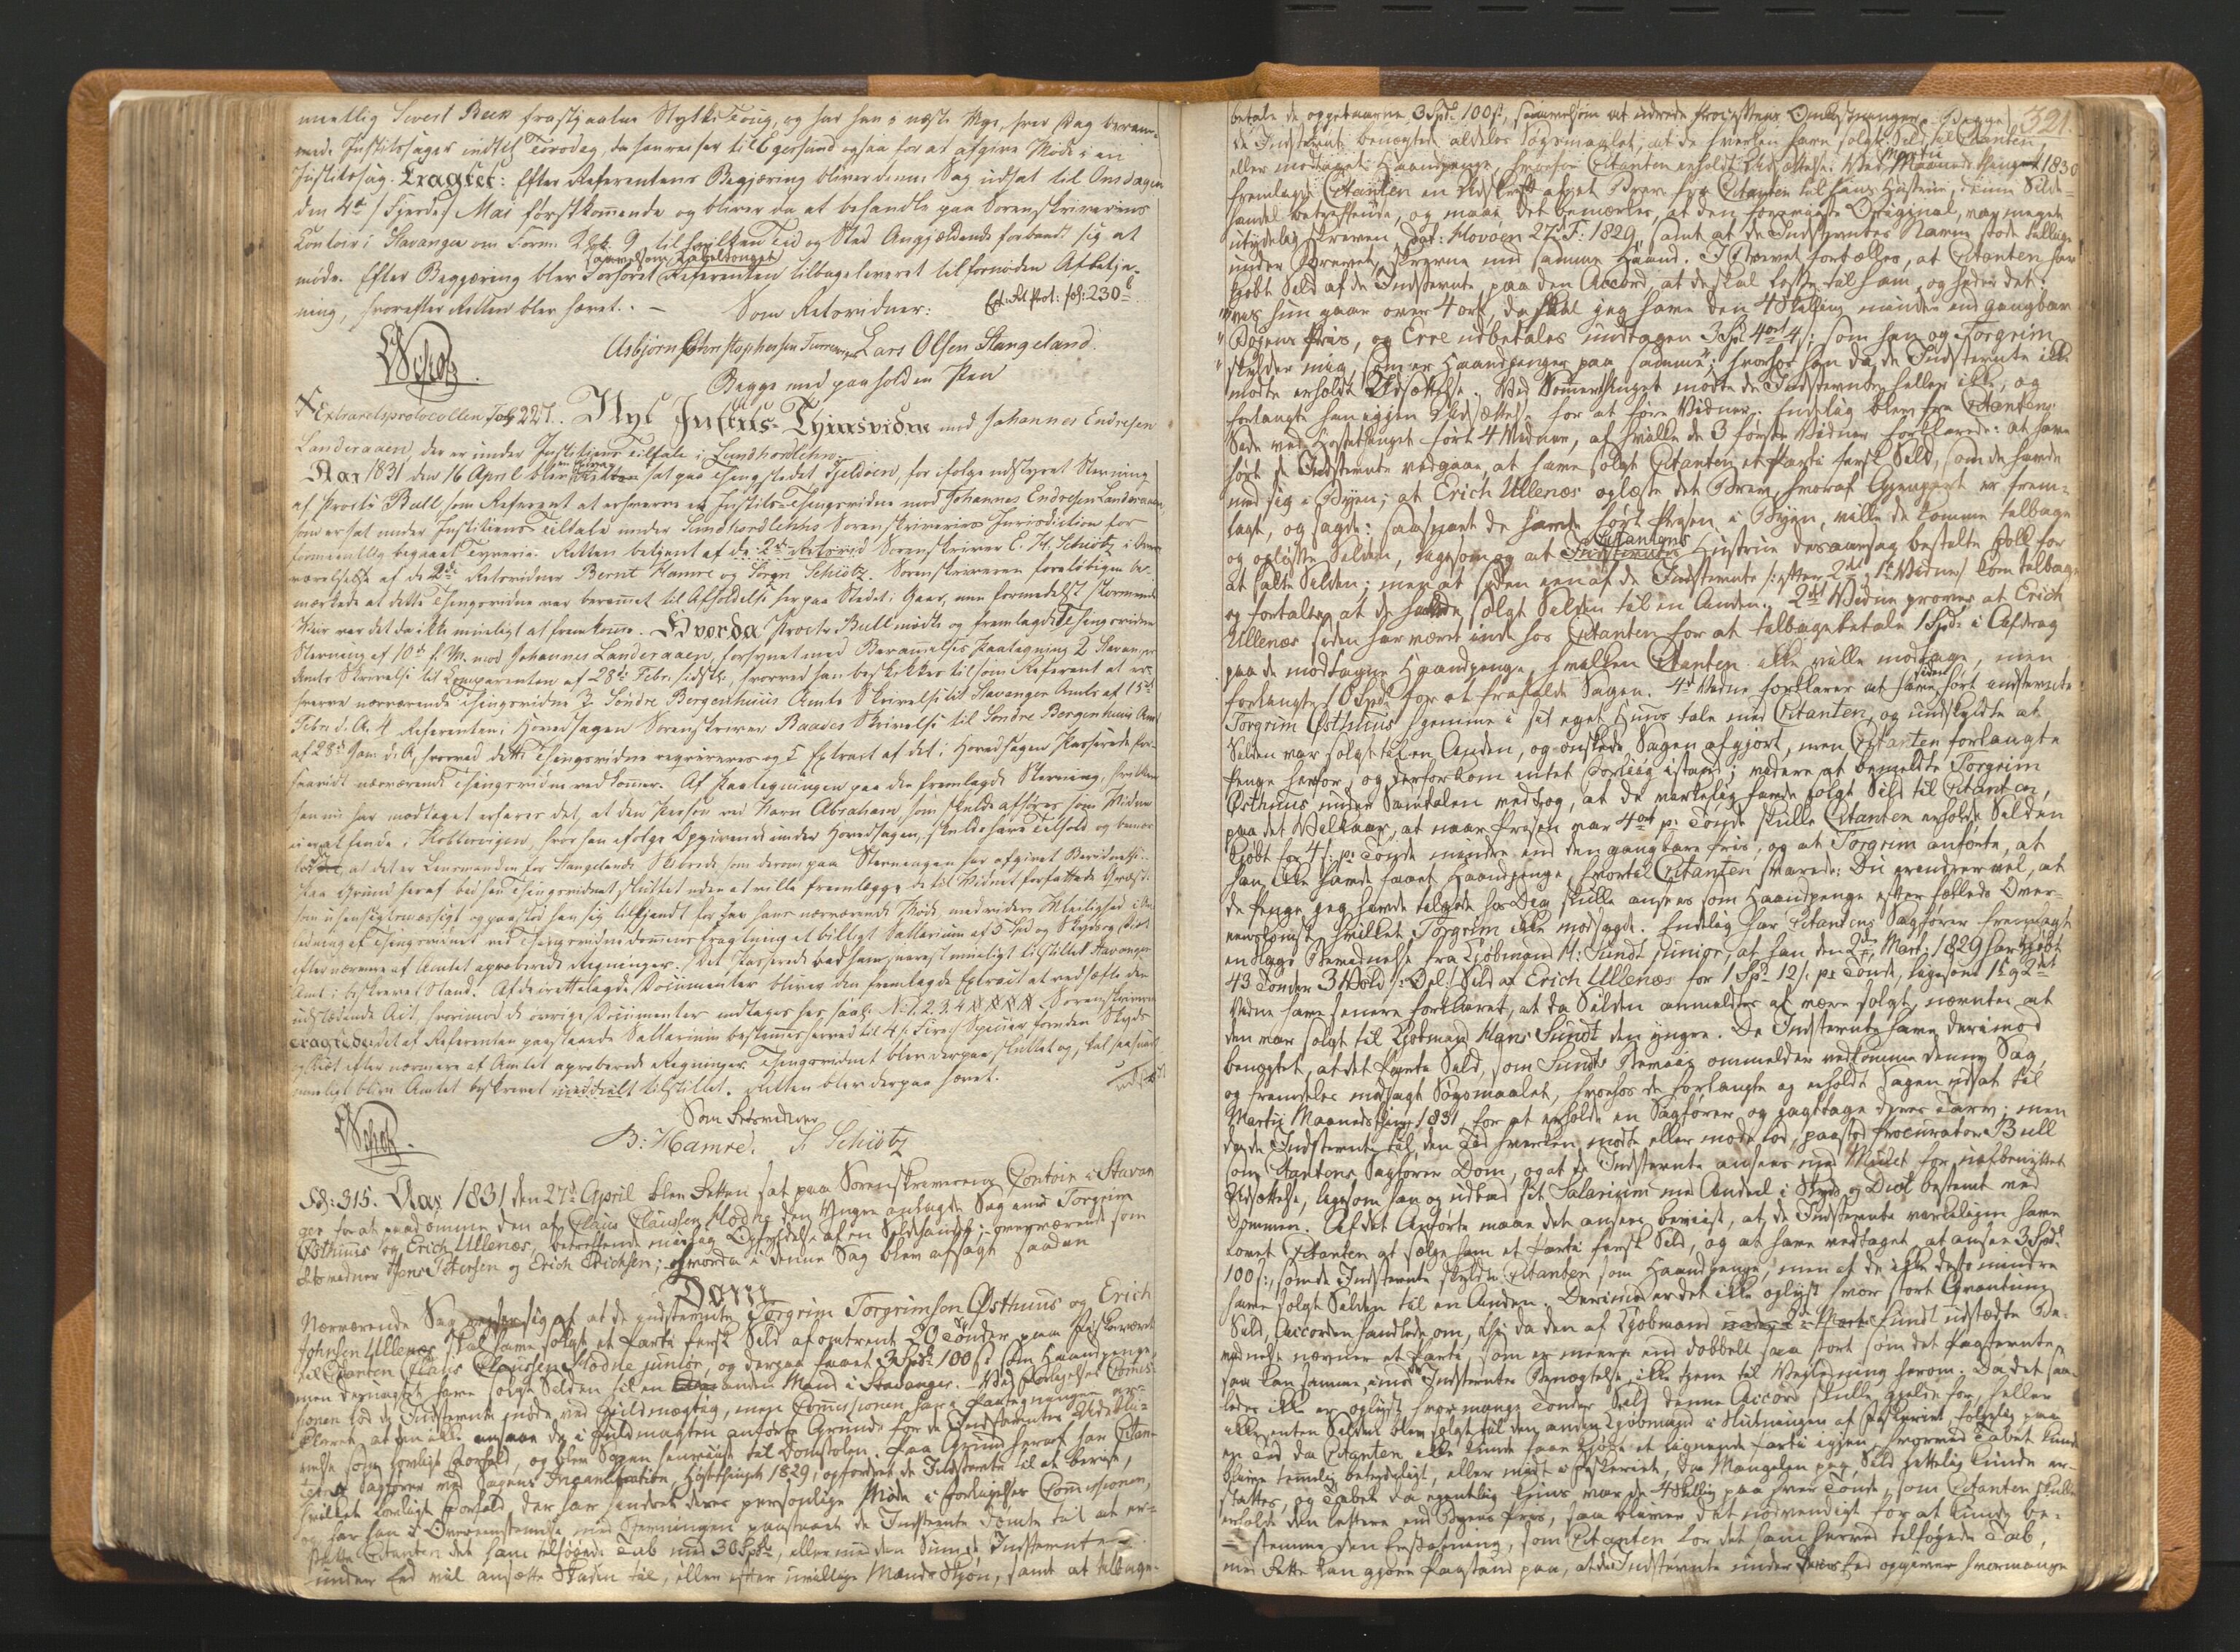 mentlig Sivert Been frastjaalne Stykke Toug, og har han i næste Uge, hver Dag beram-
mede Justitssager indtil Torsdag, da han reiser til Egersund ogsaa for at afgive Møde i en
Justitssag. Eragtet: Efter Referentens Begjæring bliver denne Sag udsat til Onsdagen
den 4de /: fjerde :/ Mai førstkommende og bliver da at behandle paa Sorenskriverens
Contoir i Stavanger om Form: Klok: 9, til hvilken Tid og Sted Angjældende forbandt sig at
saavelsom Kabeltouget
møde. Efter Begjæring blev Forhøret Referenten tilbageleveret til fornøden Afbetje-
ning, hvorefter Retten blev hævet. – Som Retsvidner: Ext: Rt Prot: fol: 230 b
Asbjørn Christophersen Lars Olsen Stangeland
Begge med paaholden Pen
Schiøtz
Extraretsprotocollen Fol 227. Nyt Justits-Thingsvidne mod Johannes Endresen
Landeraaen, der er under Justitiens Tiltale i Sundhordlehn
Aar 1831 den 16 April blev Retten sat paa Thingstedet Gjeldøen, for ifølge udstyret Stevning
af Procts Bull som Referent at erhverve et Justits-Thingsvidne mod Johannes Endresen Landeraaen,
som er sat under Justitiens Tiltale under Sundhordlehns Sorenskriveries Jurisdiction for
formeentlig begaaet Tyverie. Retten betjent af Sorenskriver E. H. Schiøtz i Over-
værelse af de 2de Retsvidner Bernt Hamre og Søren Schiøtz. Sorenskriveren foreløbigen be-
mærkede at dette Thingsvidne var berammet til Afholdelse her paa Stedet i Gaar, men formedelst stormende
Veir var det da ikke mueligt at fremkomme. Hvorda Proctr Bull mødte og fremlagde Thingsvidne
Stevning af 10de d. M. mod Johannes Landeraaen, forsynet med Berammelses Paategning 2 Stavanger
Amts Skrivelse til Comparenten af 28de Febr. sidstl., hvorved han beskikkes til som Referent at er-
hverve nærværende Thingsvidne 3 Søndre Bergenhuus Amts Skrivelse til Stavanger Amt af 15de
Febr. d. A. 4 Referenten i Hovedsagen Sorenskriver Baades Skrivelse til Søndre Bergenhuus Amt
af 28de Jan. d. A., hvorved dette Thingsvidne requireres og 5 Extract af det i Hovedsagen Passerede for-
saavidt nærværende Thingsvidne vedkommer. Af Paategningen paa den fremlagde Stevning, hvilken
han nu har modtaget erfares det, at den Person ved Navn Abraham, som skulde afhøres som Vidne
ei er at finde i Koblevigen, hvor han ifølge Opgivende under Hovedsagen, skulde have Tilhold og bemær-
kede, at det er Lensmanden for Stangelands Skibrede som derom paa Stevningen har afgivet Beviidnelse.
Paa Grund heraf bad han Thingsvidnet sluttet uden at ville fremlægge de til Vidnet forfattede Qvæst-
som uhensigtsmæssige og paastod han sig tilkjendt for sit nærværende Møde, med videre Uleilighed i An-
ledning af Thingsvidnet ved Thingsvidnedommens Fragtning et billigt Sallarium af 5 Spd og Skyds og Diæt
efter nærmere af Amtet approberede Regninger. Det Passerede bad han snarest mueligt tilstillet Stavanger
Amt i beskreven Stand. Af de irettelagte Documenter bliver den fremlagde Extract at vedhæfte den
udstædende Act, hvorimod de øvrige Documenter indtages her saal: No 1. 2. 3. 4. Sorenskriveren
eragtede det af Referenten paastaaede Sallarium bestemmes herved til 4 /: fire :/ Specier foruden Skyds
og Diæt efter nærmere af Amtet approberede Regninger. Thingsvidnet blev derpaa sluttet og skal saasnart
mueligt blive Amtet beskreven meddeelt tilstillet. Retten blev derpaa hævet.
Schiøtz. Som Retsvidner
B: Hamre. S. Schiøtz
Fol: 315. Aar 1831 den 27de April blev Retten sat paa Sorenskriverens Contoir i Stavan-
ger for at paadømme den af Claus Claussen Hodne den Yngre anlagte Sag mod Torgrim
Østhuus og Erich Ullenæs, betræffende nægtet Opfyldelse af en Sildehandel; overværende som
Retsvidner Hans Petersen og Erich Erichsen; hvorda i denne Sag blev afsagt saadan
Dom
Nærværende Sag reiser sig af at de Indstevnte Torgrim Torgrimsen Østhuus og Erich
Johnsen Ullenæs skal have solgt et Partie fersk Sild af omtrent 20 Tønder paa Fiskeværet
til Citanten Claus Claussen Hodne junior, og derpaa faaet 3 Spd 100 s som Haandpenge,
men desuagtet have solgt Silden til en anden Mand i Stavanger. Ved Forligelses Commis-
sionen lod de Indstevnte møde ved Fuldmægtig, men Commissionen har i Paategningen er-
klæret, at den ikke ansaae de i Fuldmagten anførte Grunde for de Indstevntes Udebli-
velse som lovligt Forfald, og blev Sagen henviist til Domstolen. Paa Grund heraf har Citan-
tens Sagfører ved Sagens Incamination, Høstthinget 1829, opfordret de Indstevnte til at beviise,
hvilket lovligt Forfald, der har hindret deres personlige Møde i Forligelses Commissionen,
og har han i Overeensstemmelse med Stevningen paastaaet de Indstevnte dømte til at er-
statte Citanten det ham tilføiede Tab med 30 Spd, eller med den Sum de Indstevnte
under Eed vil ansætte Skaden til, eller efter uvillige Mænds Skjøn, samt at tilbage-
321.
betale de oppebaarne 3 Spd 100 s, saavelsom at udrede Processens Omkostninger. Begge
de Indstevnte benægtede aldeles Søgsmaalet, at de hverken have solgt Sild til Citanten
eller modtaget Haandpenge, hvorfor Citanten erholdt Udsættelse. Ved Martii Maaneds Thinget 1830
fremlagde Citanten en Udskrift af et Brev fra Citanten til hans Hustrue, denne Silde-
handel betræffende, og maae det bemærkes, at den foreviiste Original, var meget
utydelig skreven dat: Hovøen 27d F: 1829 samt at de Indstevntes Navne stode tillige
under Brevet, skrevne med samme Haand. I Brevet fortælles, at Citanten har
kjøbt Sild af de Indstevnte, paa den Accord, at de skal losse til ham, og heder det:
"hvis hun gaar over 4 ort, da skal jeg have den 4 Skilling mindre end gangbar
"Byens Priis, og Erre udbetales undtagen 3 Spd 4 ort 4 s: som han og Torgrim
"skylder mig, som er Haandpenger paa samme"; hvorhos han da de Indstevnte ikke
mødte erholdt Udsættelse. Ved Sommerthinget mødte de Indstevnte heller ikke, og
forlangte han igjen Udsættelse for at føre Vidner. Endelig blev fra Citantens
Side ved Høstethinget ført 4 Vidner, af hvilke de 3 første Vidner forklarede: at have
hørt de Indstevnte vedgaae, at have solgt Citanten et Partie fersk Sild, som de havde
med sig i Byen; at Erich Ullenæs oplæste det Brev, hvoraf Gjenpart er frem-
lagt, og sagde: saasnart de havde hørt Prisen i Byen, ville de komme tilbage
og oplosse Silden, ligesom og at Citantens Hustrue desaarsag bestilte Folk for
at salte Silden; men at siden een af de Indstevnte /: efter 2det Vidne / kom tilbage
og fortalte, at de havde solgt Silden til en Anden. 2det Vidne prover at Erich
Ullenæs siden har været inde hos Citanten for at tilbagebetale 1 Spd i Afdrag
paa de modtagne Haandpenge, hvilken Citanten ikke ville modtage, men
forlangte 10 Spd for at frafalde Sagen. 4de Vidne forklarer at have siden hørt indstevnte
Torgrim Østhuus hjemme i sit eget Huus tale med Citanten, og undskyldte at
Silden var solgt til en Anden, og ønskede Sagen afgjort, men Citanten forlangte
Penge herfor, og derfor kom intet Forliig istand; videre at bemeldte Torgrim
Østhuus under Samtalen vedtog, at de virkelig havde solgt Sild til Citanten,
paa det Vilkaar, at naar Prisen var 4 ort pr Tønde skulle Citanten erholde Silden
kjøbt for 4 s: pr Tønde mindre end den gangbare Priis, og at Torgrim anførte, at
han ikke havde faaet Haandpenge, hvortil Citanten svarede: Du erindrer vel, at
de Penge jeg havde tilgode hos Dig skulle ansees som Haandpenge efter fælleds Over-
eenskomst, hvilket Torgrim ikke modsagde. Endelig har Citantens Sagfører fremlagt
en Slags Bevidnelse fra Kjøbmand H: Sundt junior, at han den 2den Mart: 1829 har kjøbt
43 Tønder 3 Wold /: Ool: / Sild af Erich Ullenæs for 1 Spd 12 s: pr Tønde, ligesom 1t og 2det
Vidne have senere forklaret, at da Silden anmeldtes at være solgt, nævntes at
den var solgt til Kjøbmand Hans Sundt den yngre. De Indstevnte have derimod
benægtet, at det Partie Sild, som Sundts Beviis ommelder vedkomme denne Sag,
og fremdeles modsagt Søgsmaalet, hvorhos de forlangte og erholdt Sagen udsat til
Martii Maanedsthing 1831, for at erholde en Sagfører og iagttage deres Tarv; men
da de Indstevnte til den Tid hverken mødte eller møde lod, paastod Procurator Bull
som Citantens Sagfører Dom, og at de Indstevnte ansees med Mulct for uafbenyttet
Udsættelse, ligesom han og udbad sit Salarium med Andeel i Skyds og Diæt bestemt ved
Dommen. Af det Anførte maae det ansees beviist, at de Indstevnte virkeligen have
lovet Citanten at sælge ham et Partie fersk Sild, og at have vedtaget, at ansee 3 Spd
100 s:, som de Indstevnte skyldte Citanten som Haandpenge, men at de ikke desto mindre
have solgt Silden til en Anden. Derimod er det ikke oplyst hvor stort Qvantum
Sild, Accorden handlede om, thi da den af Kjøbmand Sundt udstædte Be-
vidnelse nævner et Partie som er meere end dobbelt saa stort som det paastevnte,
saa kan samme, imod Indstevntes Benægtelse, ikke tjene til Veiledning herom. Da det saa-
ledes ikke er oplyst hvormange Tønder Sild denne Accord skulle gjelde for, heller
ikke enten Silden blev solgt til den anden Kjøbmand i Slutningen af Fiskeriet, følgelig paa
en Tid da Citanten ikke kunde faae kjøbt et lignende Partie igjen, hvorved Tabet kunde
blive temmelig betydeligt, eller midt i Fiskeriet, da Mangelen paa Sild lettelig kunde er-
stattes, og Tabet da egentlig kun var de 4 Skilling paa hver Tønde, som Citanten skulle
erholde den lettere end Byens Priis, saa bliver det nødvendigt for at kunde be-
stemme den Erstatning, som Citanten bør det ham herved tilføiede Tab,
med Rette kan gjøre Paastand paa, at de Indstevnte under Eed opgiver hvormange